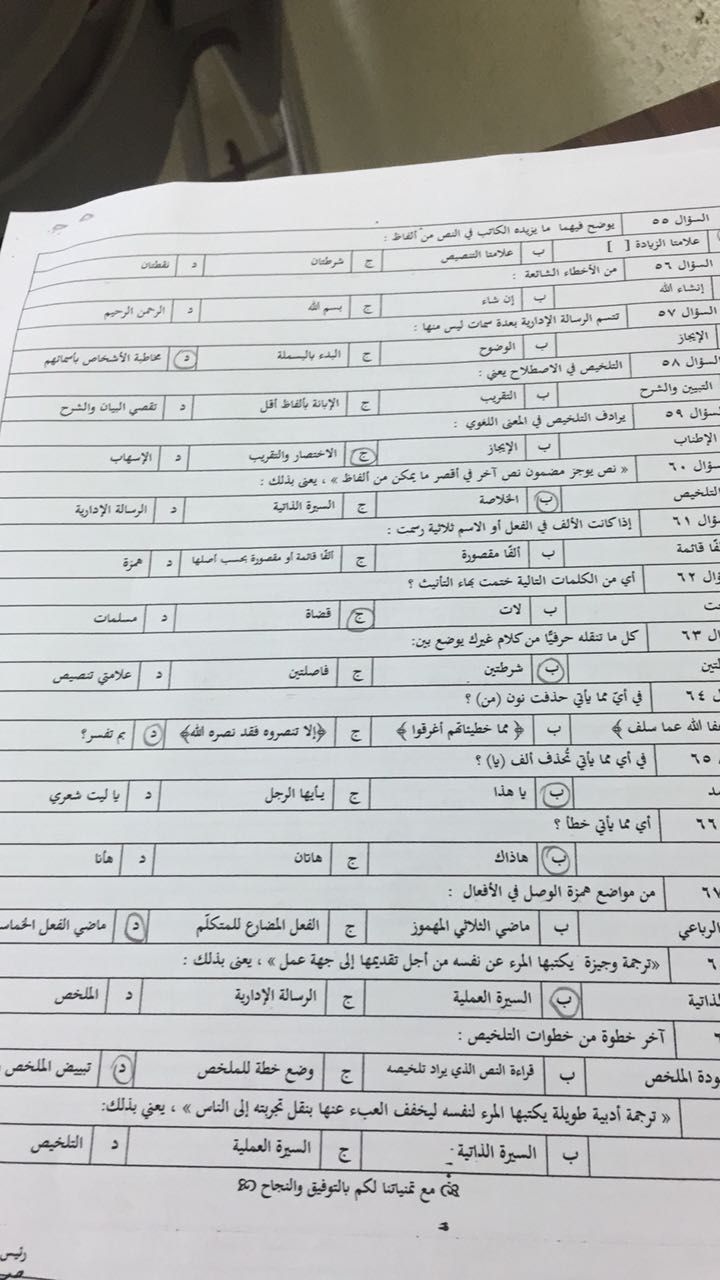 السؤال ٥٥ يوضح فيهما ما يزيده الكاتب في النص من ألفاظ :
علامتا الزيادة [ ] ب علامتا التنصيص ج شرطتان د نقطتان
السؤال ٥٦ من الأخطاء الشائعة :
إنشاء الله ب إن شاء ج بسم الله د الرحمن الرحيم
السؤال ٥٧ تتسم الرسالة الإدارية بعدة سمات ليس منها :
الإيجاز ب الوضوح ج البدء بالبسملة د مخاطبة الأشخاص بأسمائهم
السؤال ٥٨ التلخيص في الاصطلاح يعني :
التبيين والشرح ب التقريب ج الإبانة بألفاظ أقل د تقصي البيان والشرح
السؤال ٥٩ يرادف التلخيص في المعنى اللغوي :
الإطناب ب الإيجاز ج الاختصار والتقريب د الإسهاب
سؤال ٦٠ « نص يوجز مضمون نص آخر في أقصر ما يمكن من ألفاظ » ، يعنى بذلك :
التلخيص ب الخلاصة ج السيرة الذاتية د الرسالة الإدارية
ؤال ٦١ إذا كانت الألف في الفعل أو الاسم ثلاثية رسمت :
قائمة ب ألفًا مقصورة ج ألفًا قائمة أو مقصورة بحسب أصلها د همزة
ال ٦٢ أي من الكلمات التالية ختمت بهاء التأنيث ؟
ب لات ج قضاة د مسلمات
ل ٦٣ كل ما تنقله حرفيًّا من كلام غيرك يوضع بين:
ب شرطتين ج فاصلتين د علامتي تنصيص
ل ٦٤ في أيّ مما يأتي حذفت نون (من) ؟
فا الله عما سلف ﴾ ب ﴿ مما خطيئاتهم أغرقوا ﴾ ج ﴿إلا تنصروه فقد نصره الله﴾ د بم تفسر؟
٦٥ في أي مما يأتي تُحذف ألف (يا) ؟
ب يا هذا ج يأيها الرجل د يا ليت شعري
٦٦ أي مما يأتي خطأ ؟
ب هاذاك ج هاتان د هأنا
٦٧ من مواضع همزة الوصل في الأفعال :
الرباعي ب ماضي الثلاثي المهموز ج الفعل المضارع للمتكلّم د ماضي الفعل الخماس
٦ «ترجمة وجيزة يكتبها المرء عن نفسه من أجل تقديمها إلى جهة عمل» ، يعنى بذلك :
ب السيرة العملية ج الرسالة الإدارية د الملخص
آخر خطوة من خطوات التلخيص :
ودة الملخص ب قراءة النص الذي يراد تلخيصه ج وضع خطة للملخص د تبييض الملخص
« ترجمة أدبية طويلة يكتبها المرء لنفسه ليخفف العبء عنها بنقل تجربته إلى الناس » ، يعني بذلك:
ب السيرة الذاتية ج السيرة العملية د التلخيص
مع تمنياتنا لكم بالتوفيق والنجاح
رئيس